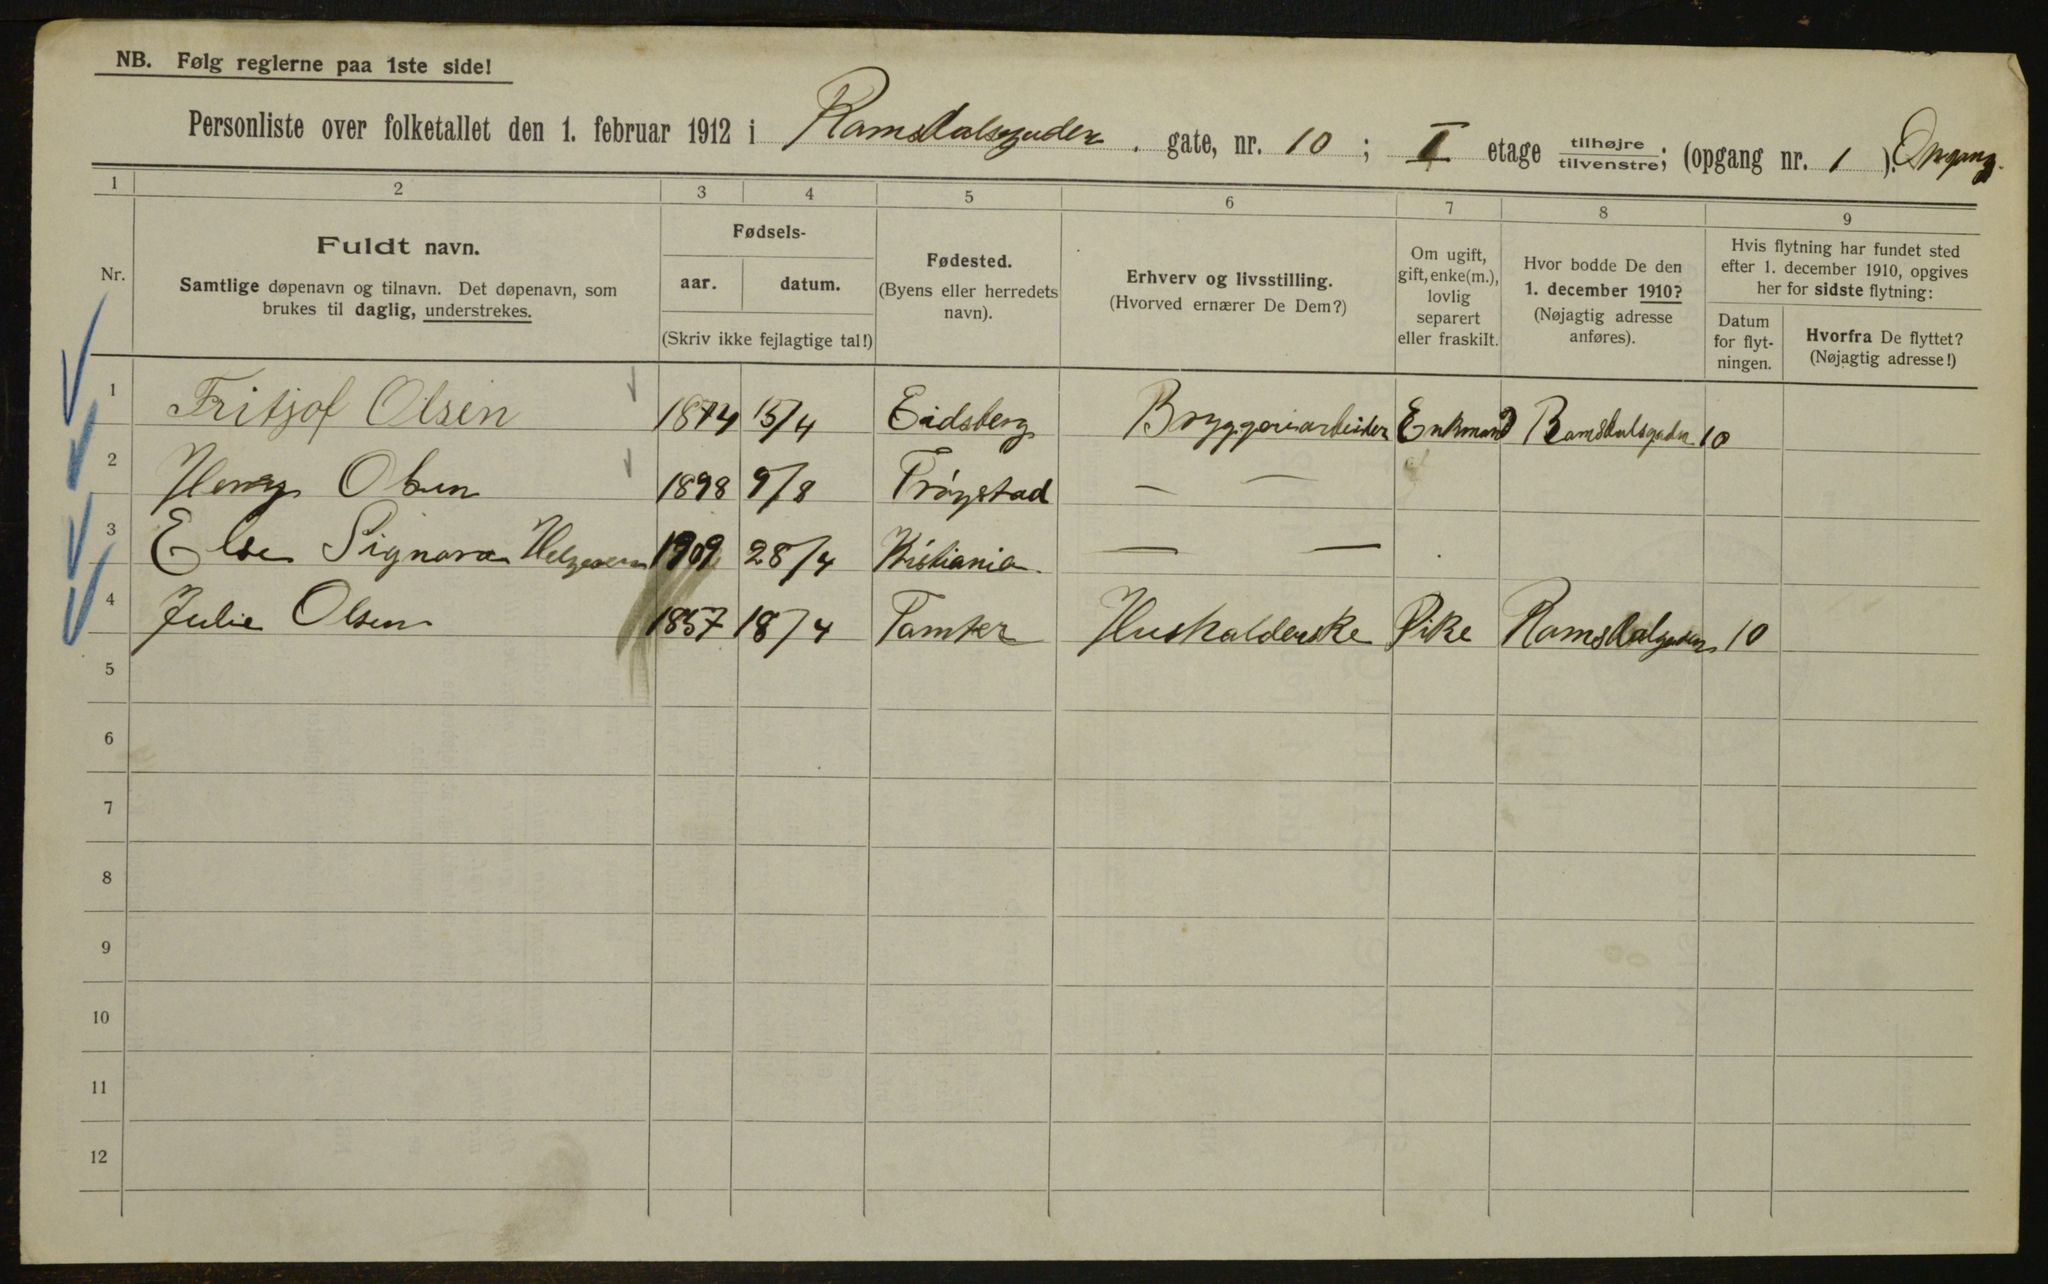 NB. Følg reglerne paa 1ste side!
Personliste over folketallet den 1. februar 1912 i Ramsdalsgaden . gate, nr. 10 ; I etage tilhøjre/tilvenstre; (opgang nr. 1 ). Opgang.
1 2 3 4 5 6 7 8 9
Nr.
Fuldt navn.
Samtlige døpenavn og tilnavn. Det døpenavn, som
brukes til daglig, understrekes.
Fødsels-
aar. datum.
(Skriv ikke fejlagtige tal!)
Fødested.
(Byens eller herredets
navn).
Erhverv og livsstilling.
(Hvorved ernærer De Dem?)
Om ugift,
gift, enke(m.),
lovlig
separert
eller fraskilt.
Hvor bodde De den
1. december 1910?
(Nøjagtig adresse
anføres).
Hvis flytning har fundet sted
efter 1. december 1910, opgives
her for sidste flytning:
Datum
for flyt-
ningen.
Hvorfra De flyttet?
(Nøjagtig adresse!)
1 Fritjof Olsen 1874 15/4 Eidsberg Bryggeriarbeider Enkmand Ramsdalsgaden 10
2 Henry Olsen 1898 9/8 Trøgstad — —
3 Else Signora 1909 28/4 Kristiania — —
4 Julie Olsen 1857 18/4 Tomter Husholderske Pike Ramsdalgaden 10
5
6
7
8
9
10
11
12